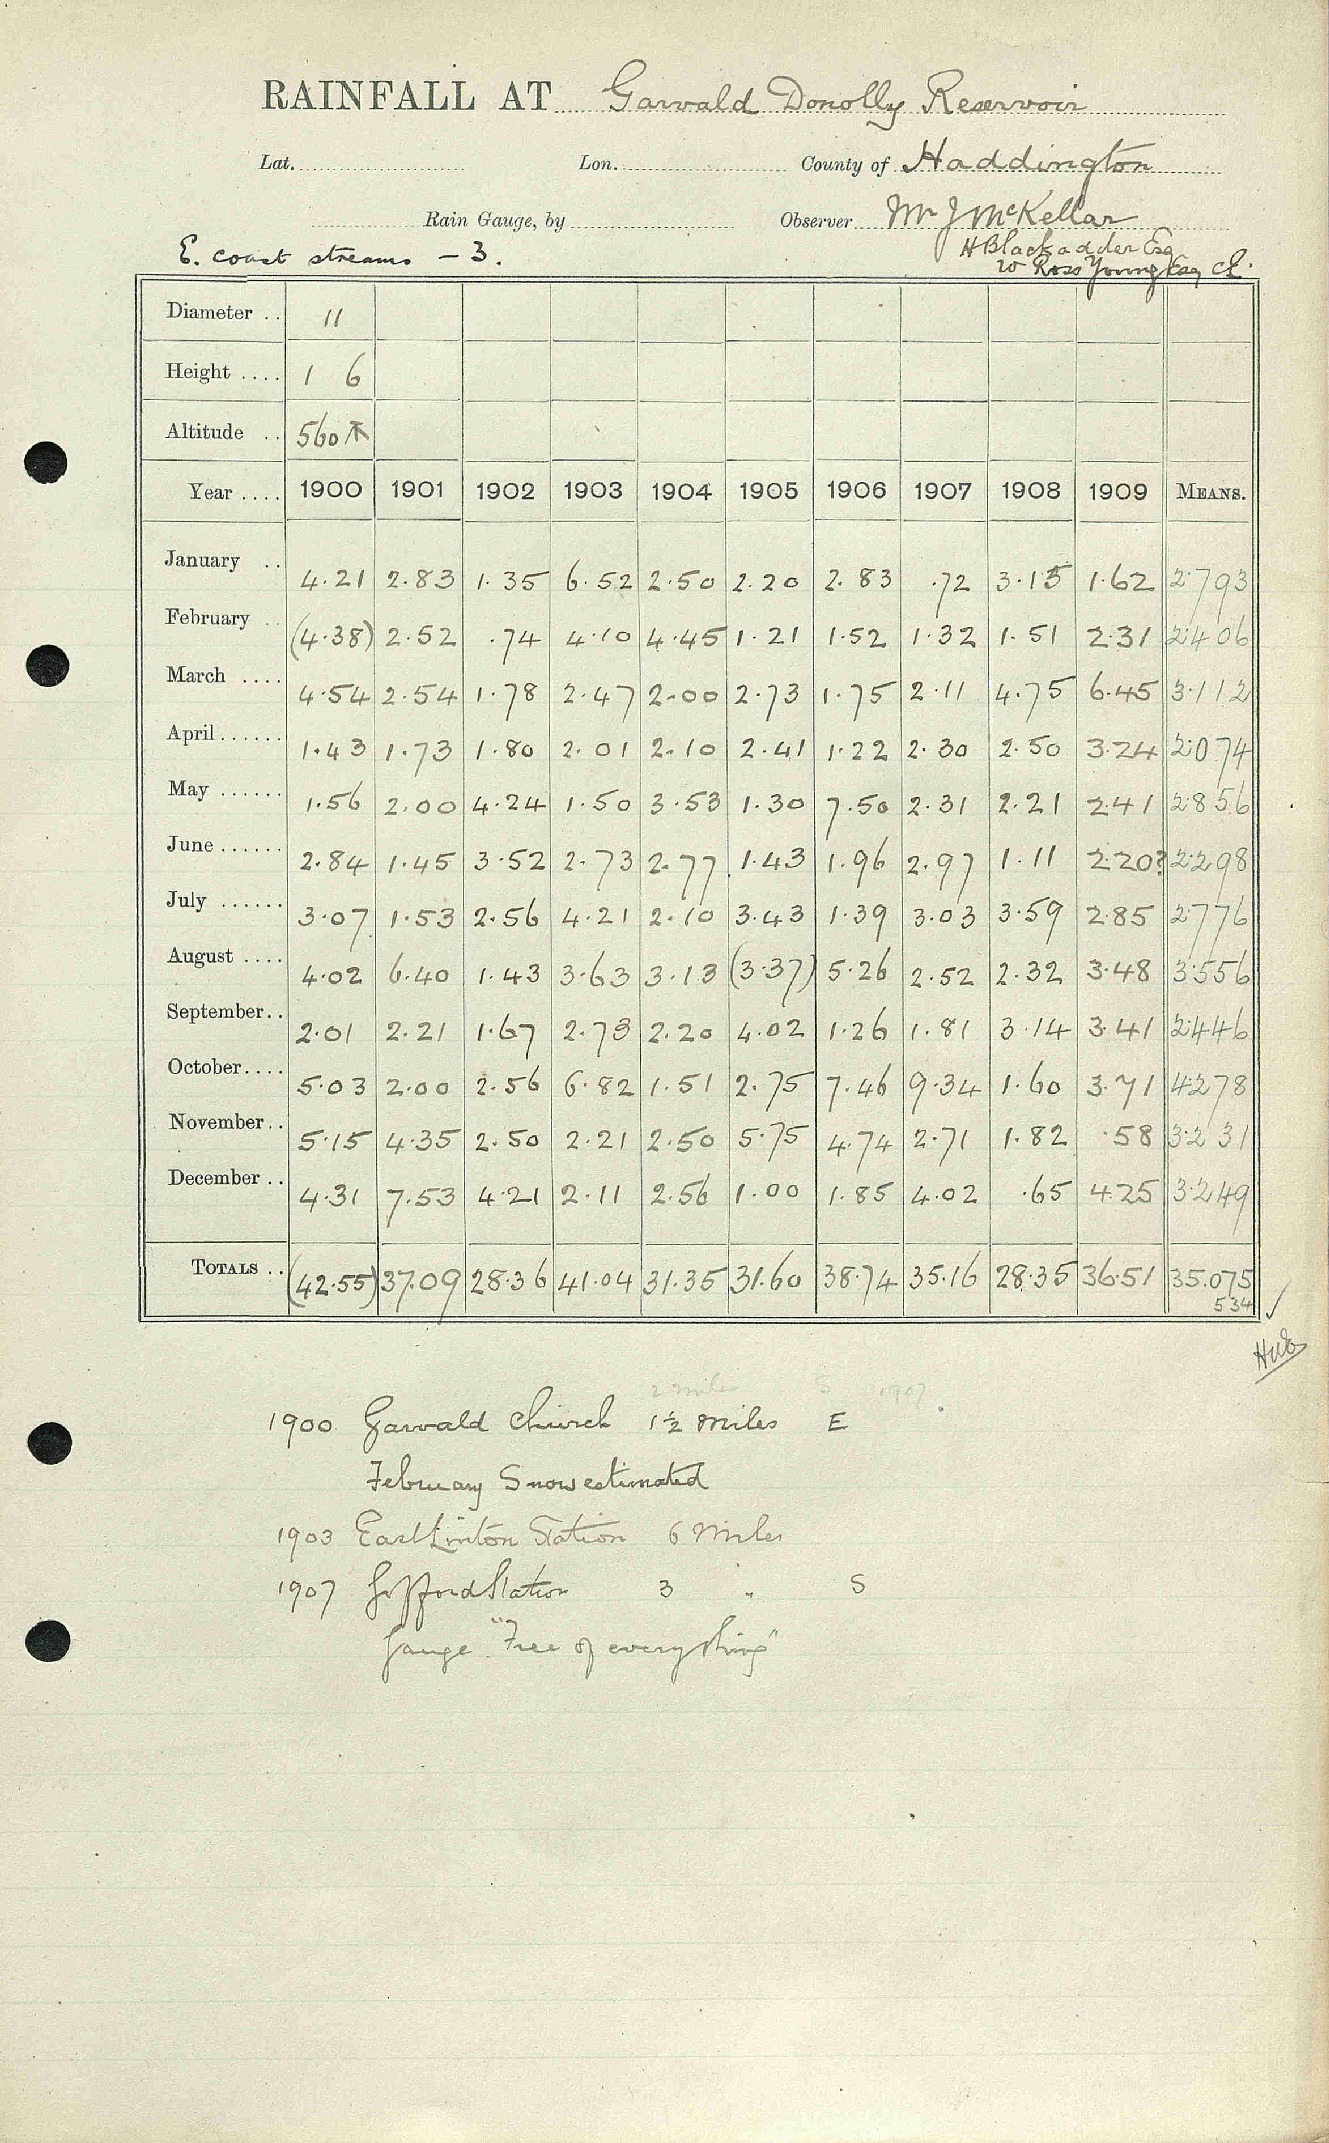 RAINFALL AT Garvald Donolly Reservoir
Lat. Lon. County of Haddington
Rain Gauge, by Observer Mr J McKellar
E. coast streams - 3. H Blackadder Esq
W Ross Young Esq CE.
Diameter .. 11
Height .... 1 6
Altitude .. 560
Year .... 1900 1901 1902 1903 1904 1905 1906 1907 1908 1909 MEANS.
January .. 4.21 2.83 1.35 6.52 2.50 2.20 2.83 .72 3.15 1.62 2.793
February .. (4.38) 2.52 .74 4.10 4.45 1.21 1.52 1.32 1.51 2.31 2.406
March .... 4.54 2.54 1.78 2.47 2.00 2.73 1.75 2.11 4.75 6.45 3.112
April...... 1.43 1.73 1.80 2.01 2.10 2.41 1.22 2.30 2.50 3.24 2.074
May ...... 1.56 2.00 4.24 1.50 3.53 1.30 7.50 2.31 2.21 2.41 2.856
June ...... 2.84 1.45 3.52 2.73 2.77 1.43 1.96 2.97 1.11 2.20? 2.298
July ...... 3.07 1.53 2.56 4.21 2.10 3.43 1.39 3.03 3.59 2.85 2.776
August .... 4.02 6.40 1.43 3.63 3.13 (3.37) 5.26 2.52 2.32 3.48 3.556
September.. 2.01 2.21 1.67 2.73 2.20 4.02 1.26 1.81 3.14 3.41 2.446
October.... 5.03 2.00 2.56 6.82 1.51 2.75 7.46 9.34 1.60 3.71 4.278
November.. 5.15 4.35 2.50 2.21 2.50 5.75 4.74 2.71 1.82 .58 3.231
December .. 4.31 7.53 4.21 2.11 2.56 1.00 1.85 4.02 .65 4.25 3.249
TOTALS .. (42.55) 37.09 28.36 41.04 31.35 31.60 38.74 35.16 28.35 36.51 35.075
534 ✓
2 miles S 1907.
1900 Garvald Church 1½ miles E
February Snow estimated
1903 East Linton Station 6 Miles
1907 Gifford Station 3 " S
Gauge "Free of everything"